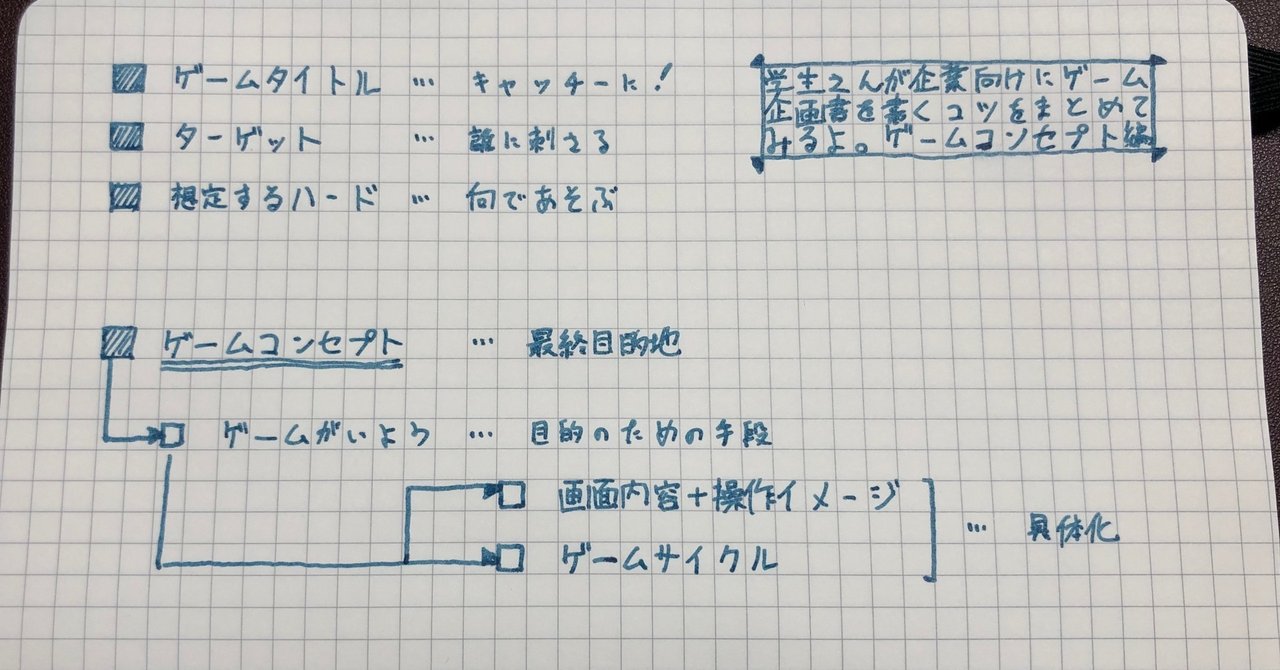 ■ ゲームタイトル … キャッチーに!
■ ターゲット … 誰に刺さる
■ 想定するハード … 何であそぶ
学生さんが企業向けにゲーム
企画書を書くコツをまとめて
みるよ。ゲームコンセプト編
■ ゲームコンセプト … 最終目的地
□ ゲームがいよう … 目的のための手段
□ 画面内容+操作イメージ
□ ゲームサイクル
… 具体化